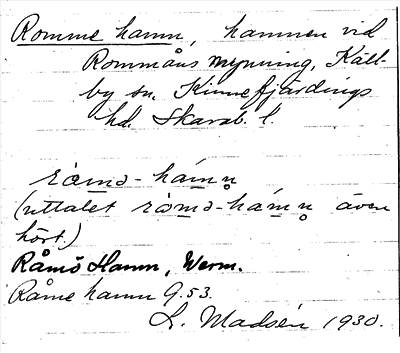 Romme hamn, hamnen vid
Rommåns mynning, Käll-
by sn, Kinnefjärdings
hd. Skarab. l.
ròmə-hámn̥
(uttalet ròmə-hámn̥ även
hört.)
Råmö Hamn, Werm.
Råme hamn G.53.
L. Madsén 1930.